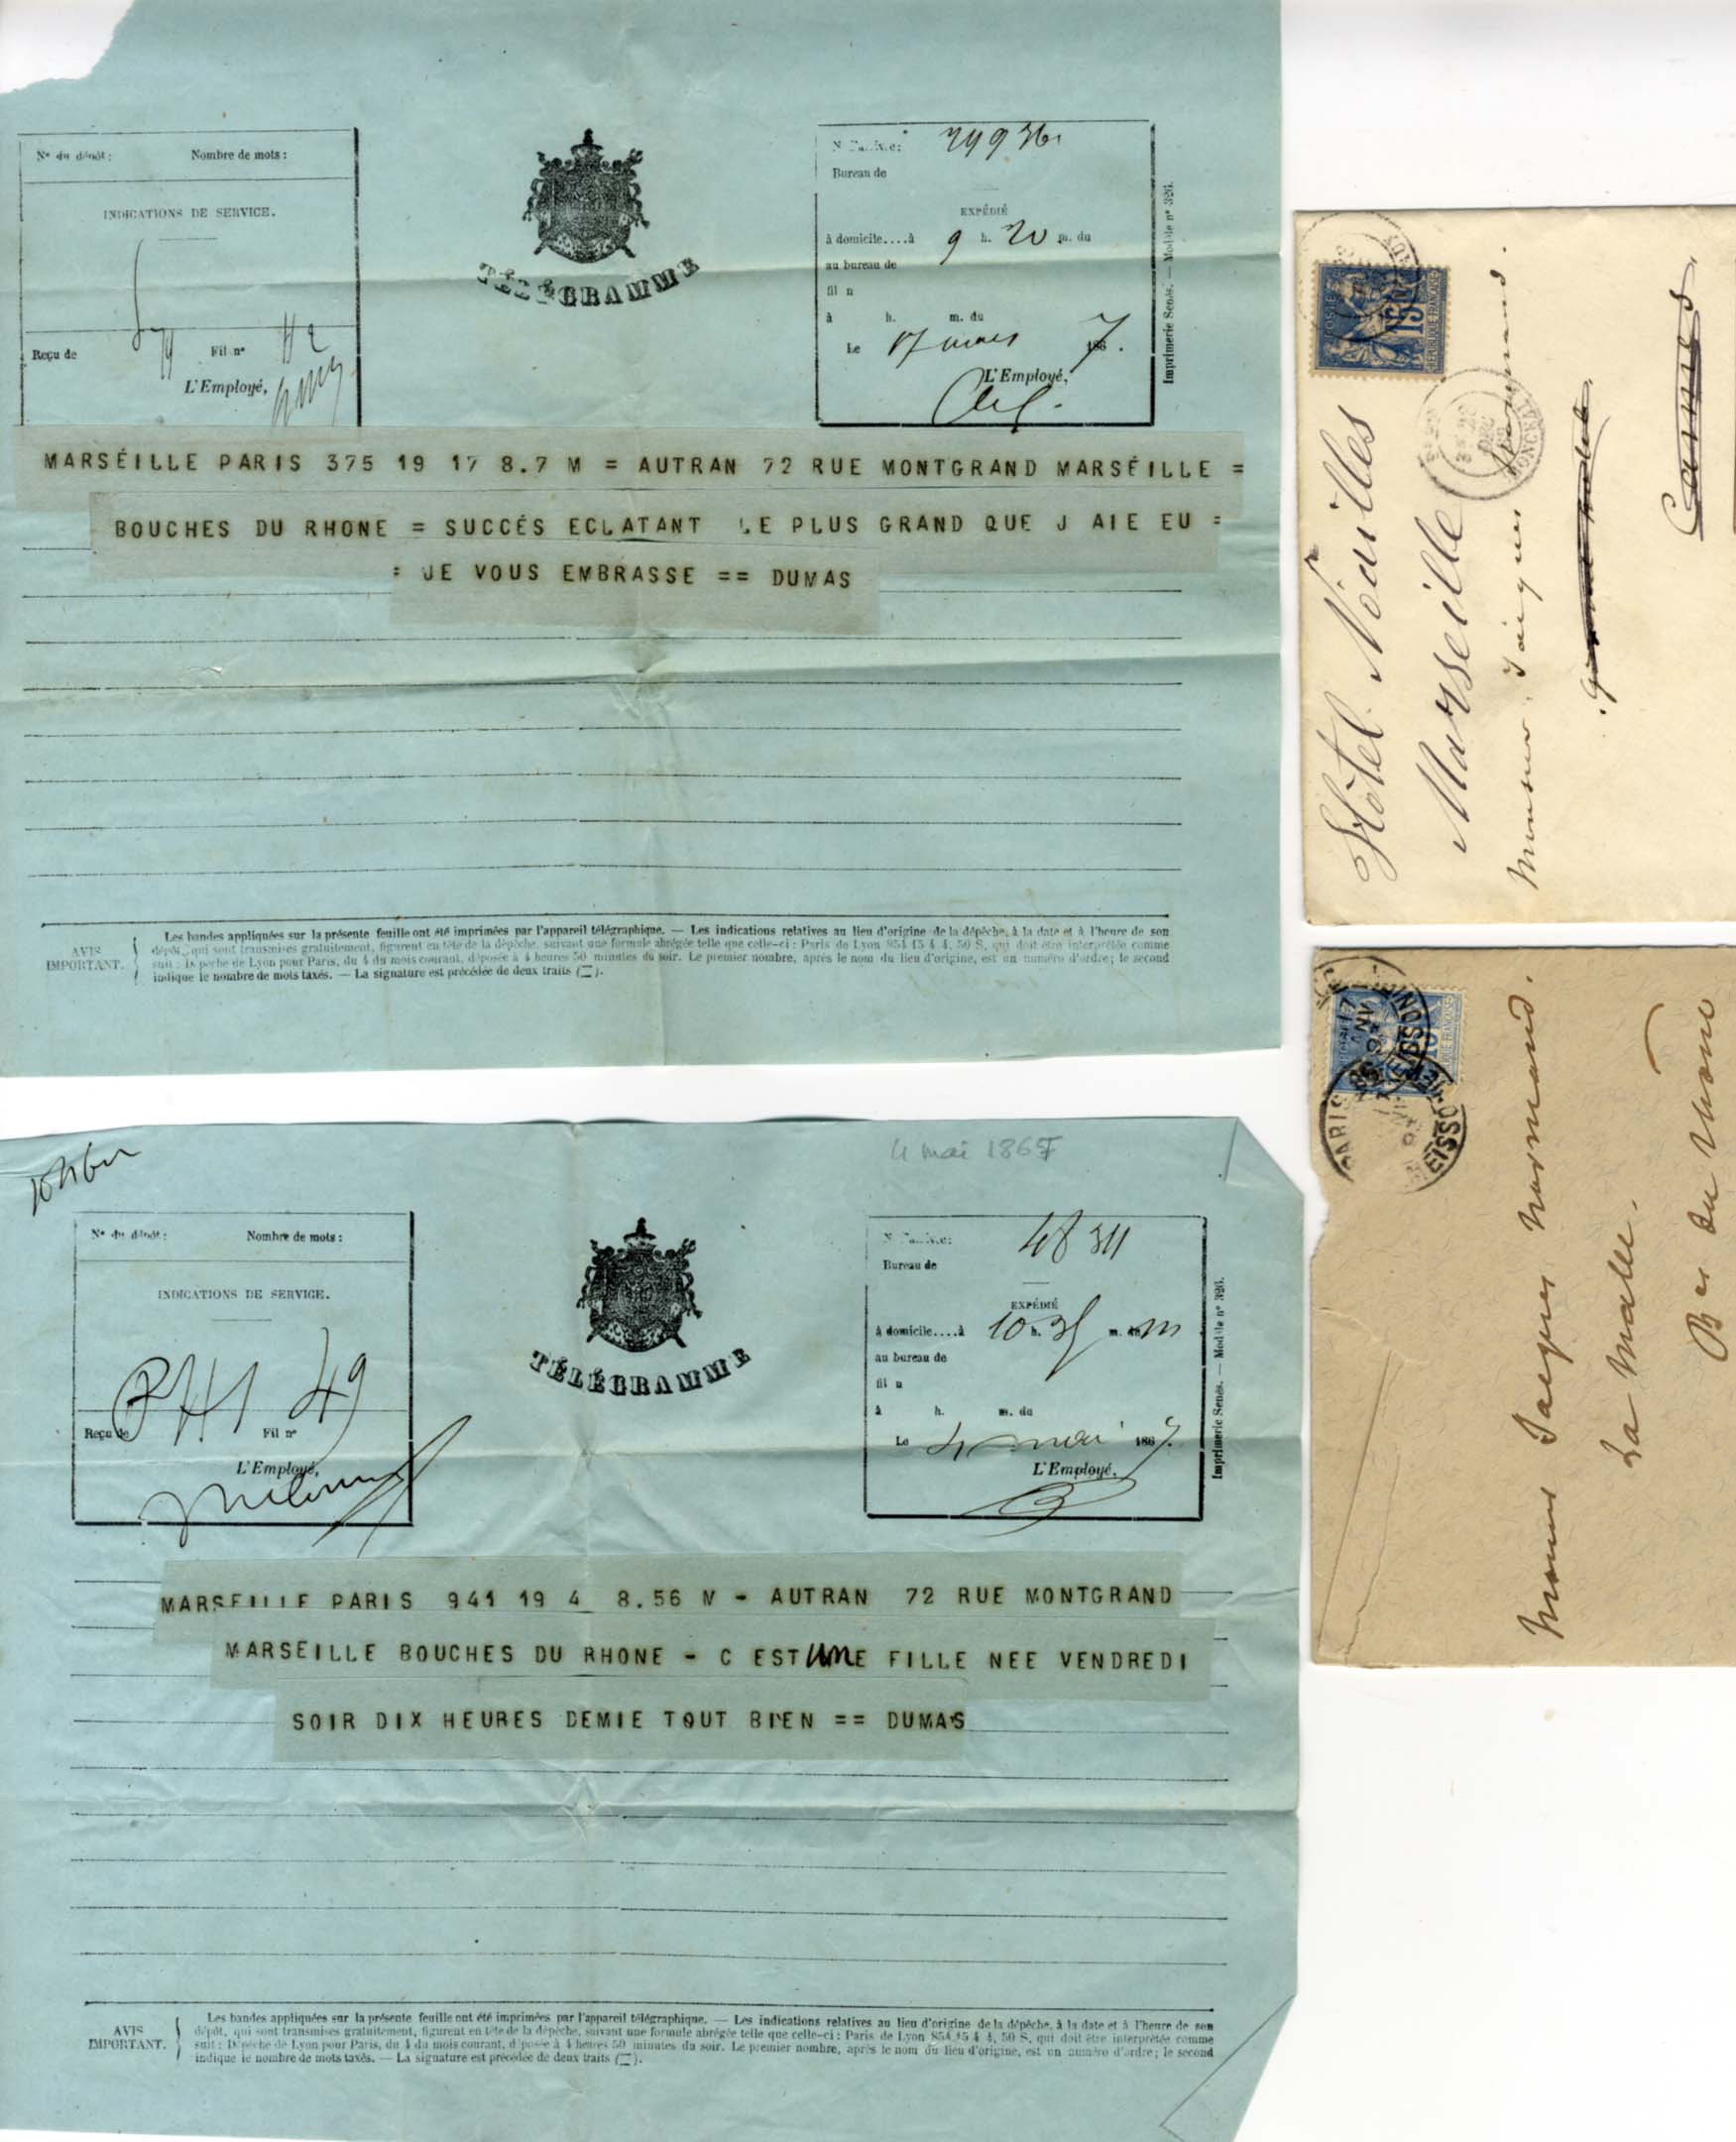 N° du dépôt : Nombre de mots :
INDICATIONS DE SERVICE.
Reçu de Fil n°
L'Employé,
TÉLÉGRAMME
Bureau de
EXPÉDIÉ
à domicile....à 9 h. 20 m. du
au bureau de
fil n
à h. m. du
Le 17 mars 186 7.
L'Employé,
Imprimerie Senés. — Modèle n° 326.
MARSÉILLE PARIS 375 19 17 8.7 M = AUTRAN 72 RUE MONTGRAND MARSÉILLE =
BOUCHES DU RHONE = SUCCÉS ECLATANT LE PLUS GRAND QUE J AIE EU =
= JE VOUS EMBRASSE == DUMAS
AVIS IMPORTANT.
Les bandes appliquées sur la présente feuille ont été imprimées par l'appareil télégraphique. — Les indications relatives au lieu d'origine de la dépêche, à la date et à l'heure de son
dépôt, qui sont transmises gratuitement, figurent en tête de la dépêche, suivant une formule abrégée telle que celle-ci : Paris de Lyon 854 15 4 4, 50 S, qui doit être interprétée comme
suit : Dépêche de Lyon pour Paris, du 4 du mois courant, déposée à 4 heures 50 minutes du soir. Le premier nombre, après le nom du lieu d'origine, est un numéro d'ordre; le second
indique le nombre de mots taxés. — La signature est précédée de deux traits (=).
4 mai 1867
N° du dépôt : Nombre de mots :
INDICATIONS DE SERVICE.
49
Reçu de Fil n°
L'Employé,
TÉLÉGRAMME
Bureau de
EXPÉDIÉ
à domicile....à 10 h. 35 m. du m
au bureau de
fil n
à h. m. du
Le 4 mai 1867.
L'Employé,
Imprimerie Senés. — Modèle n° 326.
MARSEILLE PARIS 941 19 4 8.56 M - AUTRAN 72 RUE MONTGRAND
MARSEILLE BOUCHES DU RHONE - C EST UNE FILLE NEE VENDREDI
SOIR DIX HEURES DEMIE TOUT BIEN == DUMAS
AVIS IMPORTANT.
Les bandes appliquées sur la présente feuille ont été imprimées par l'appareil télégraphique. — Les indications relatives au lieu d'origine de la dépêche, à la date et à l'heure de son
dépôt, qui sont transmises gratuitement, figurent en tête de la dépêche, suivant une formule abrégée telle que celle-ci : Paris de Lyon 854 15 4 4, 50 S, qui doit être interprétée comme
suit : Dépêche de Lyon pour Paris, du 4 du mois courant, déposée à 4 heures 50 minutes du soir. Le premier nombre, après le nom du lieu d'origine, est un numéro d'ordre; le second
indique le nombre de mots taxés. — La signature est précédée de deux traits (=).
15
REPUBLIQUE FRANÇAISE
Hôtel Noailles
Marseille
Monsieur Jacques Normand.
Cannes
PARIS
Monsieur Jacques Normand.
La Malle.
Bes du Rhône